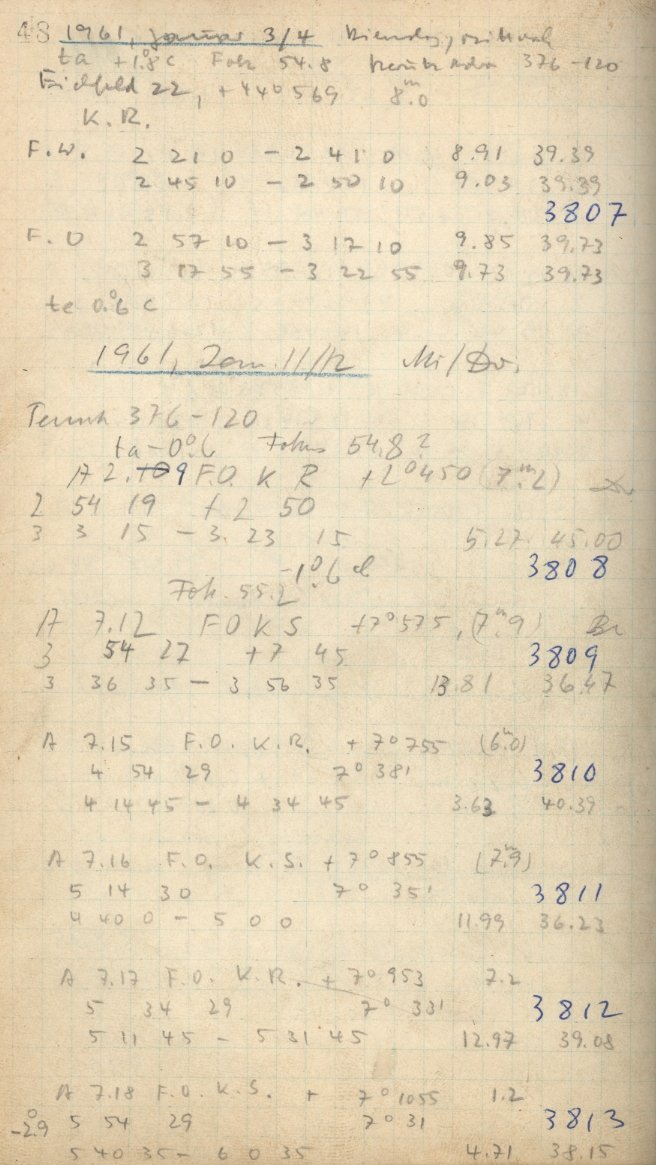 48 1961, januar 3/4
ta +1°.8 C Fok 54.8 376-120
Eichfeld 22, +44°569 8m.0
K.R.
F.W. 2 21 0 - 2 41 0 8.91 39.39
2 45 10 - 2 50 10 9.03 39.39
3807
F.O 2 57 10 - 3 17 10 9.85 39.73
3 17 55 - 3 22 55 9.73 39.73
te 0°.6 C
1961, Jan. 11/12 Mi/Do.
376-120
ta -0°.6 Fokus 54.8?
A 2.09 F.O. K R +2°450 (7m.2)
2 54 19 +2 50
3 3 15 - 3 23 15 5.27 45.00
-1°.6 3808
Fok. 55.2
A 7.12 F O K S +7°575, (7m.9)
3 54 27 +7 45 3809
3 36 35 - 3 56 35 13.81 36.47
A 7.15 F.O. K.R. +7°755 (6m.0)
4 54 29 7° 38' 3810
4 14 45 - 4 34 45 3.63 40.39
A 7.16 F.O. K.S. +7°855 (7m.9)
5 14 30 7° 35' 3811
4 40 0 - 5 0 0 11.99 36.23
A 7.17 F.O. K.R. +7°953 7.2
5 34 29 7° 33' 3812
5 11 45 - 5 31 45 12.97 39.08
A 7.18 F.O. K.S. + 7°1055 1.2
-2°.9 5 54 29 7° 31 3813
5 40 35 - 6 0 35 4.71 38.15